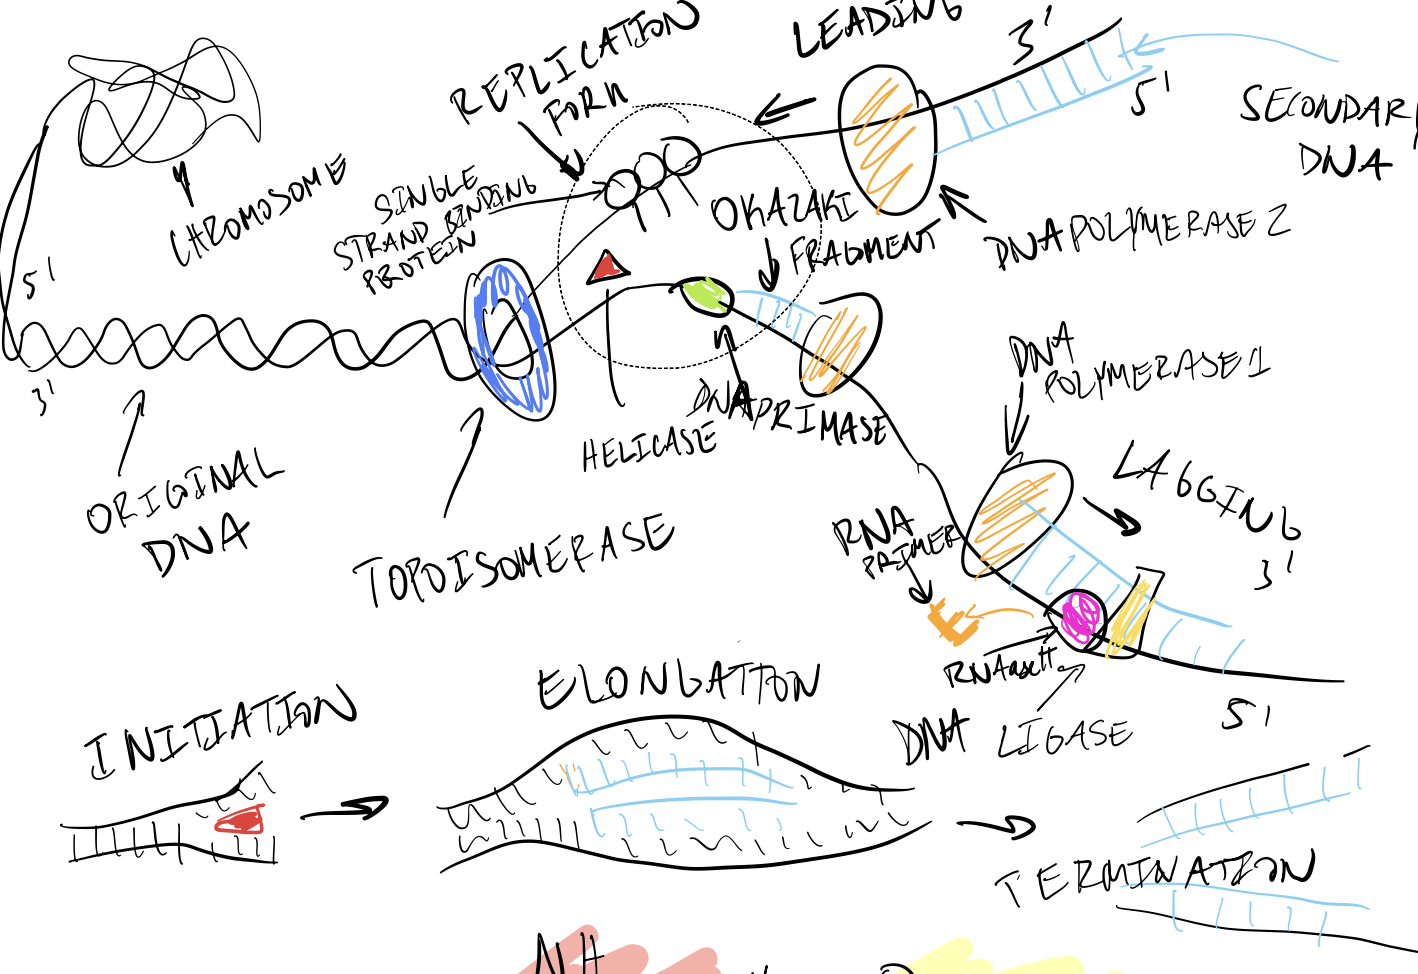 REPLICATION
FORK
LEADING
3'
5'
SECONDARY
DNA
CHROMOSOME
SINGLE
STRAND BINDING
PROTEIN
OKAZAKI
FRAGMENT
DNA POLYMERASE 2
5'
3'
ORIGINAL
DNA
TOPOISOMERASE
HELICASE
DNA PRIMASE
DNA
POLYMERASE 1
LAGGING
3'
RNA
PRIMER
RNAaseH
DNA LIGASE
5'
INITIATION
ELONGATION
TERMINATION